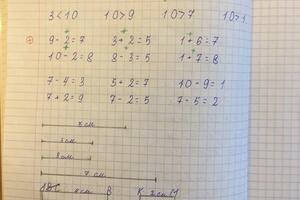 3<10 10>9 10>7 10>1
9-2=7 3+2=5 1+6=7
10-2=8 8-3=5 1+7=8
7-4=3 5+2=7 10-9=1
7+2=9 7-2=5 7-5=2
см
см
см
7 см
В К М